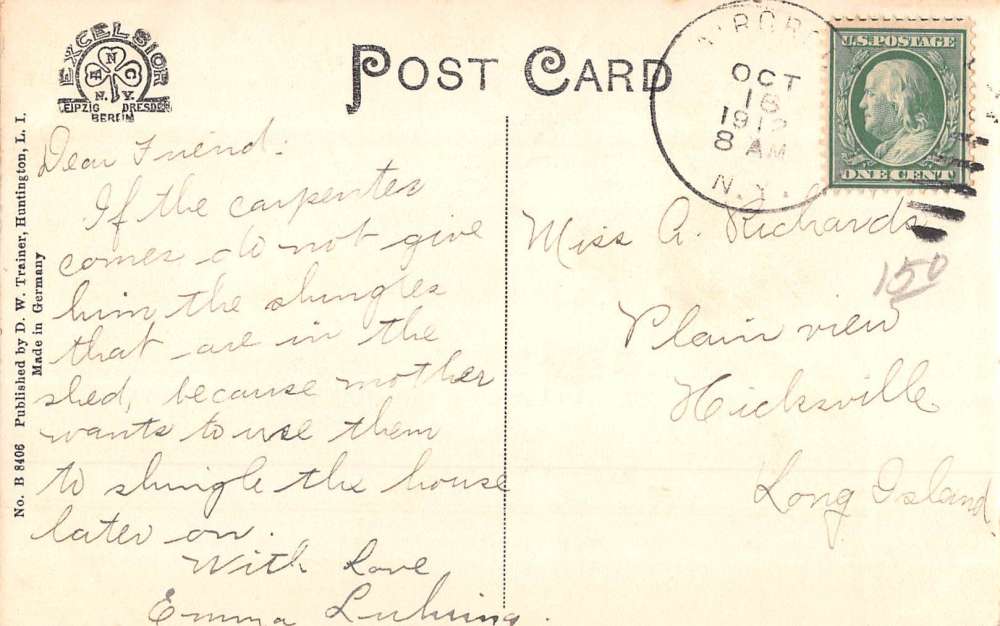 EXCELSIOR
ANC
N.Y.
LEIPZIG DRESDEN
BERLIN
POST CARD
OCT
16
1912
8 AM
N.Y.
U.S. POSTAGE
ONE CENT
No. B 8406 Published by D. W. Trainer, Huntington, L. I.
Made in Germany
Dear Friend:
If the carpenter
comes do not give
him the shingles
that are in the
shed, because mother
wants to use them
to shingle the house
later on.
With Love
Emma
Miss A. Richards
150
Plain view
Hicksville
Long Island